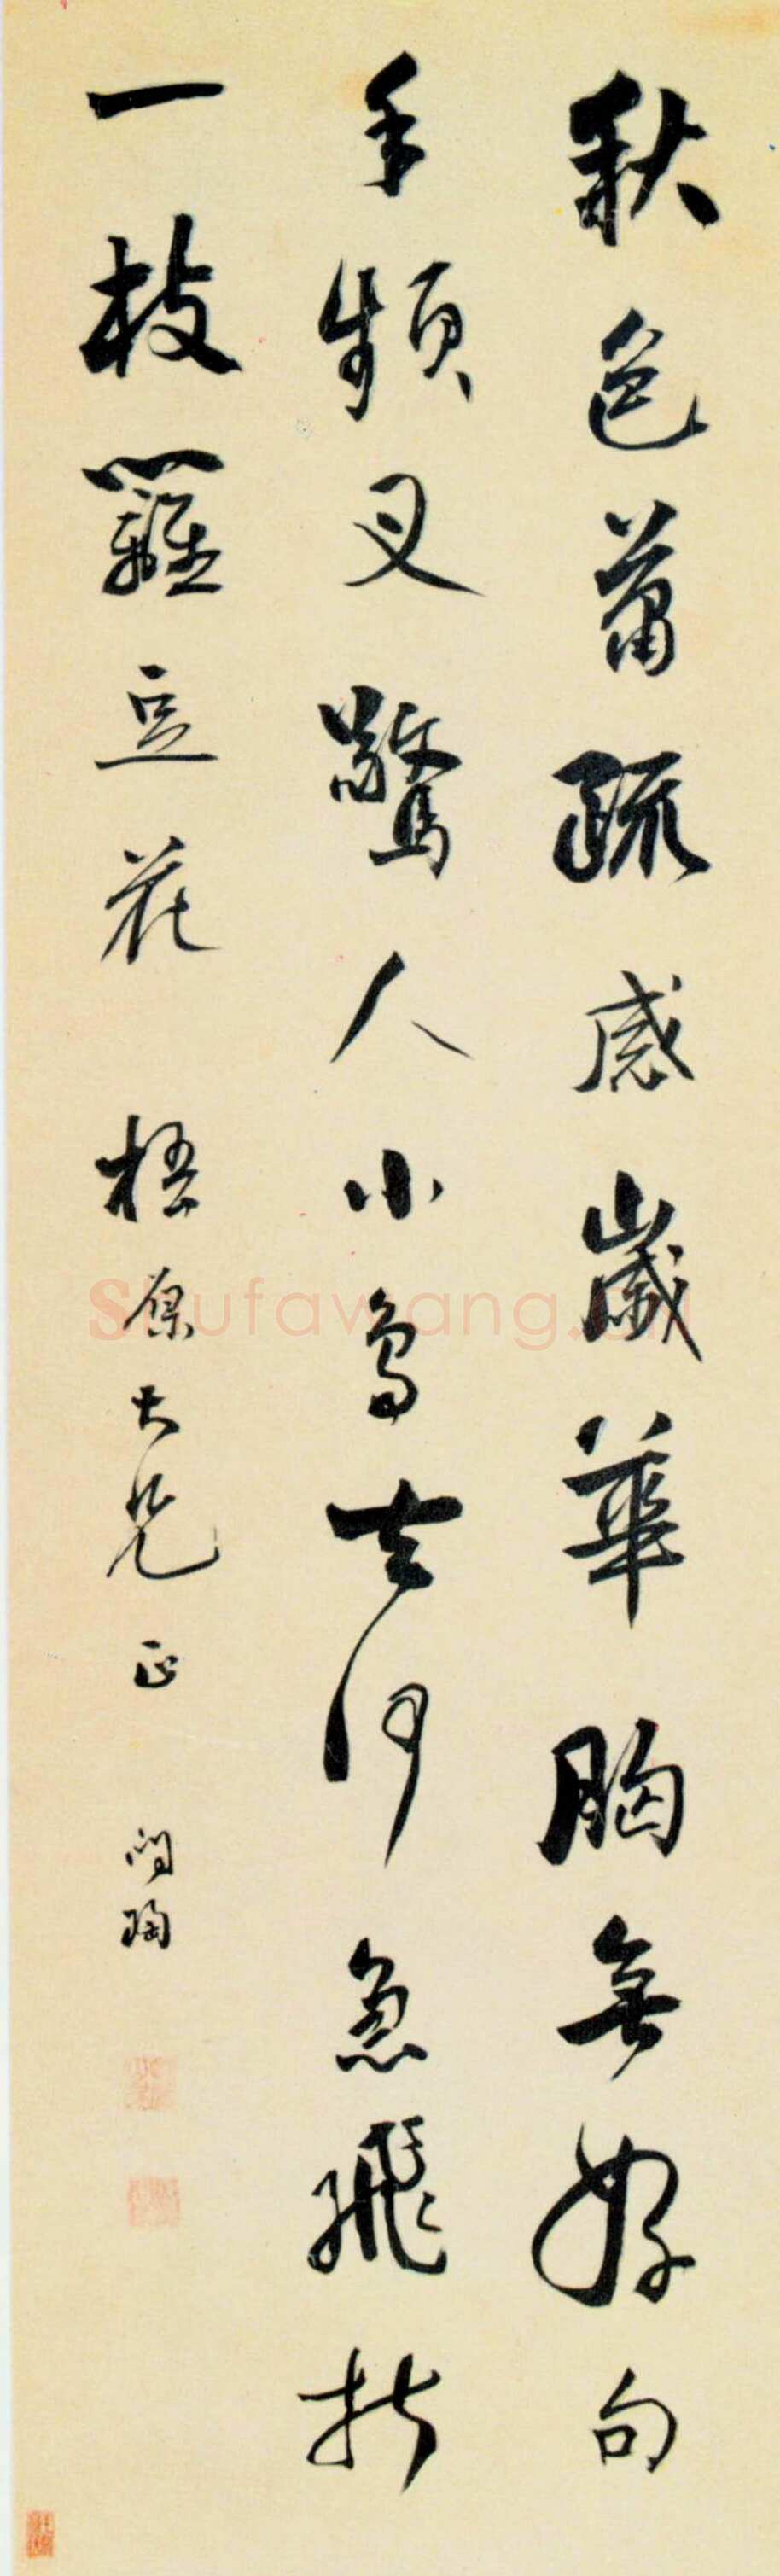 秋色蕭疏感歲華胸無好句
手頻叉驚人小鳥去何急飛折
一枝籬豆花 梧原大兄正
shufawang.cn